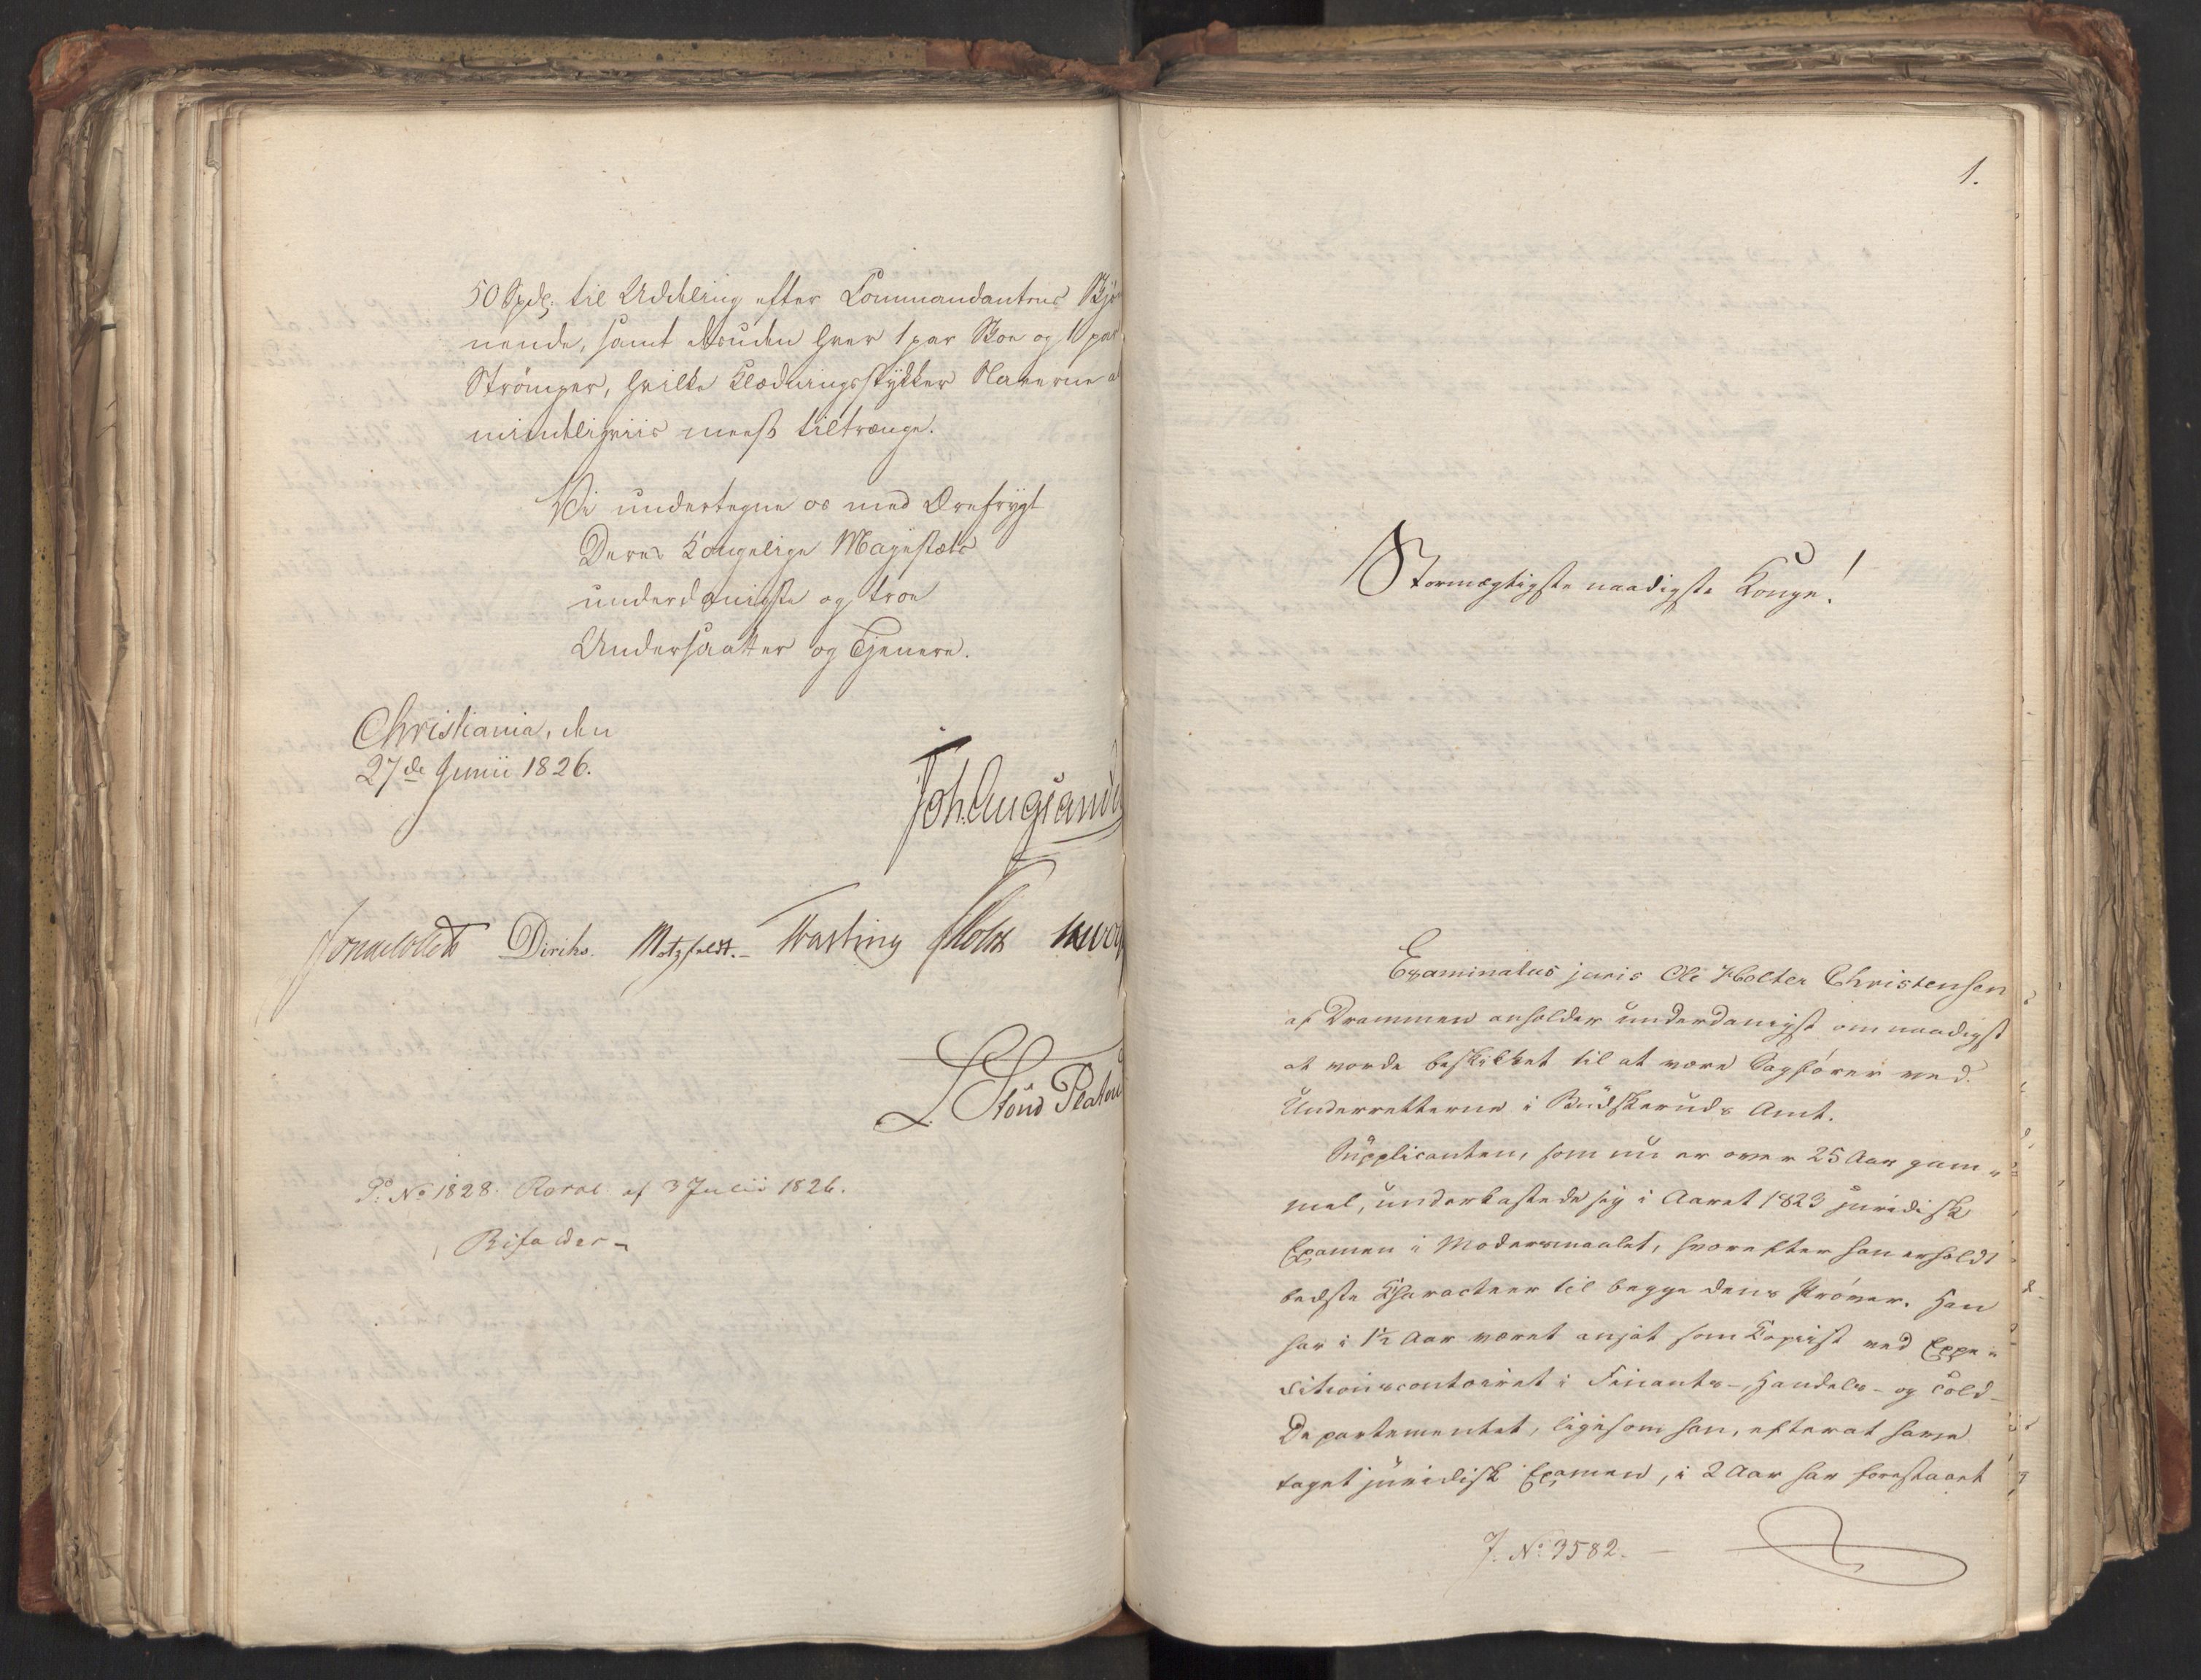 50 Spdl: til Uddeling efter Commandantens Skjön
nende, samt desuden hver 1 par Skoe og 1 par
Strömper, hvilke Klædningsstykker Slaverne al
mindeligviis meest tiltrænge.
Vi undertegne os med Ærefrygt
Deres Kongelige Majestæts
underdanigste og troe
Undersaatter og Tjenere.
Christiania, den
27de Junii 1826.
Joh. Aug. Sandels
Diriks. Motzfeldt. Fasting Holst
L. Stoud Platou
P: No 1828. Resol. af 3 Julii 1826.
Bifaldes
1.
Stormægtigste naadigste Konge!
Examinatus juris Ole Holter Christensen
af Drammen anholder underdanigst om naadigst
at vorde beskikket til at være Sagfører ved
Underretterne i Budskeruds Amt.
Supplicanten, som nu er over 25 Aar gam„
mel, underkastede sig i Aaret 1823 juridisk
Examen i Modersmaalet, hvorefter han erholdt
bedste Characteer til begge dens Prøver. Han
har i 1½ Aar været ansat som Kopiist ved Expe„
ditionscontoiret i Finants-, Handels- og Told-
Departementet, ligesom han, efterat have
taget juridisk Examen, i 2 Aar har forestaaet
J. No 3582.